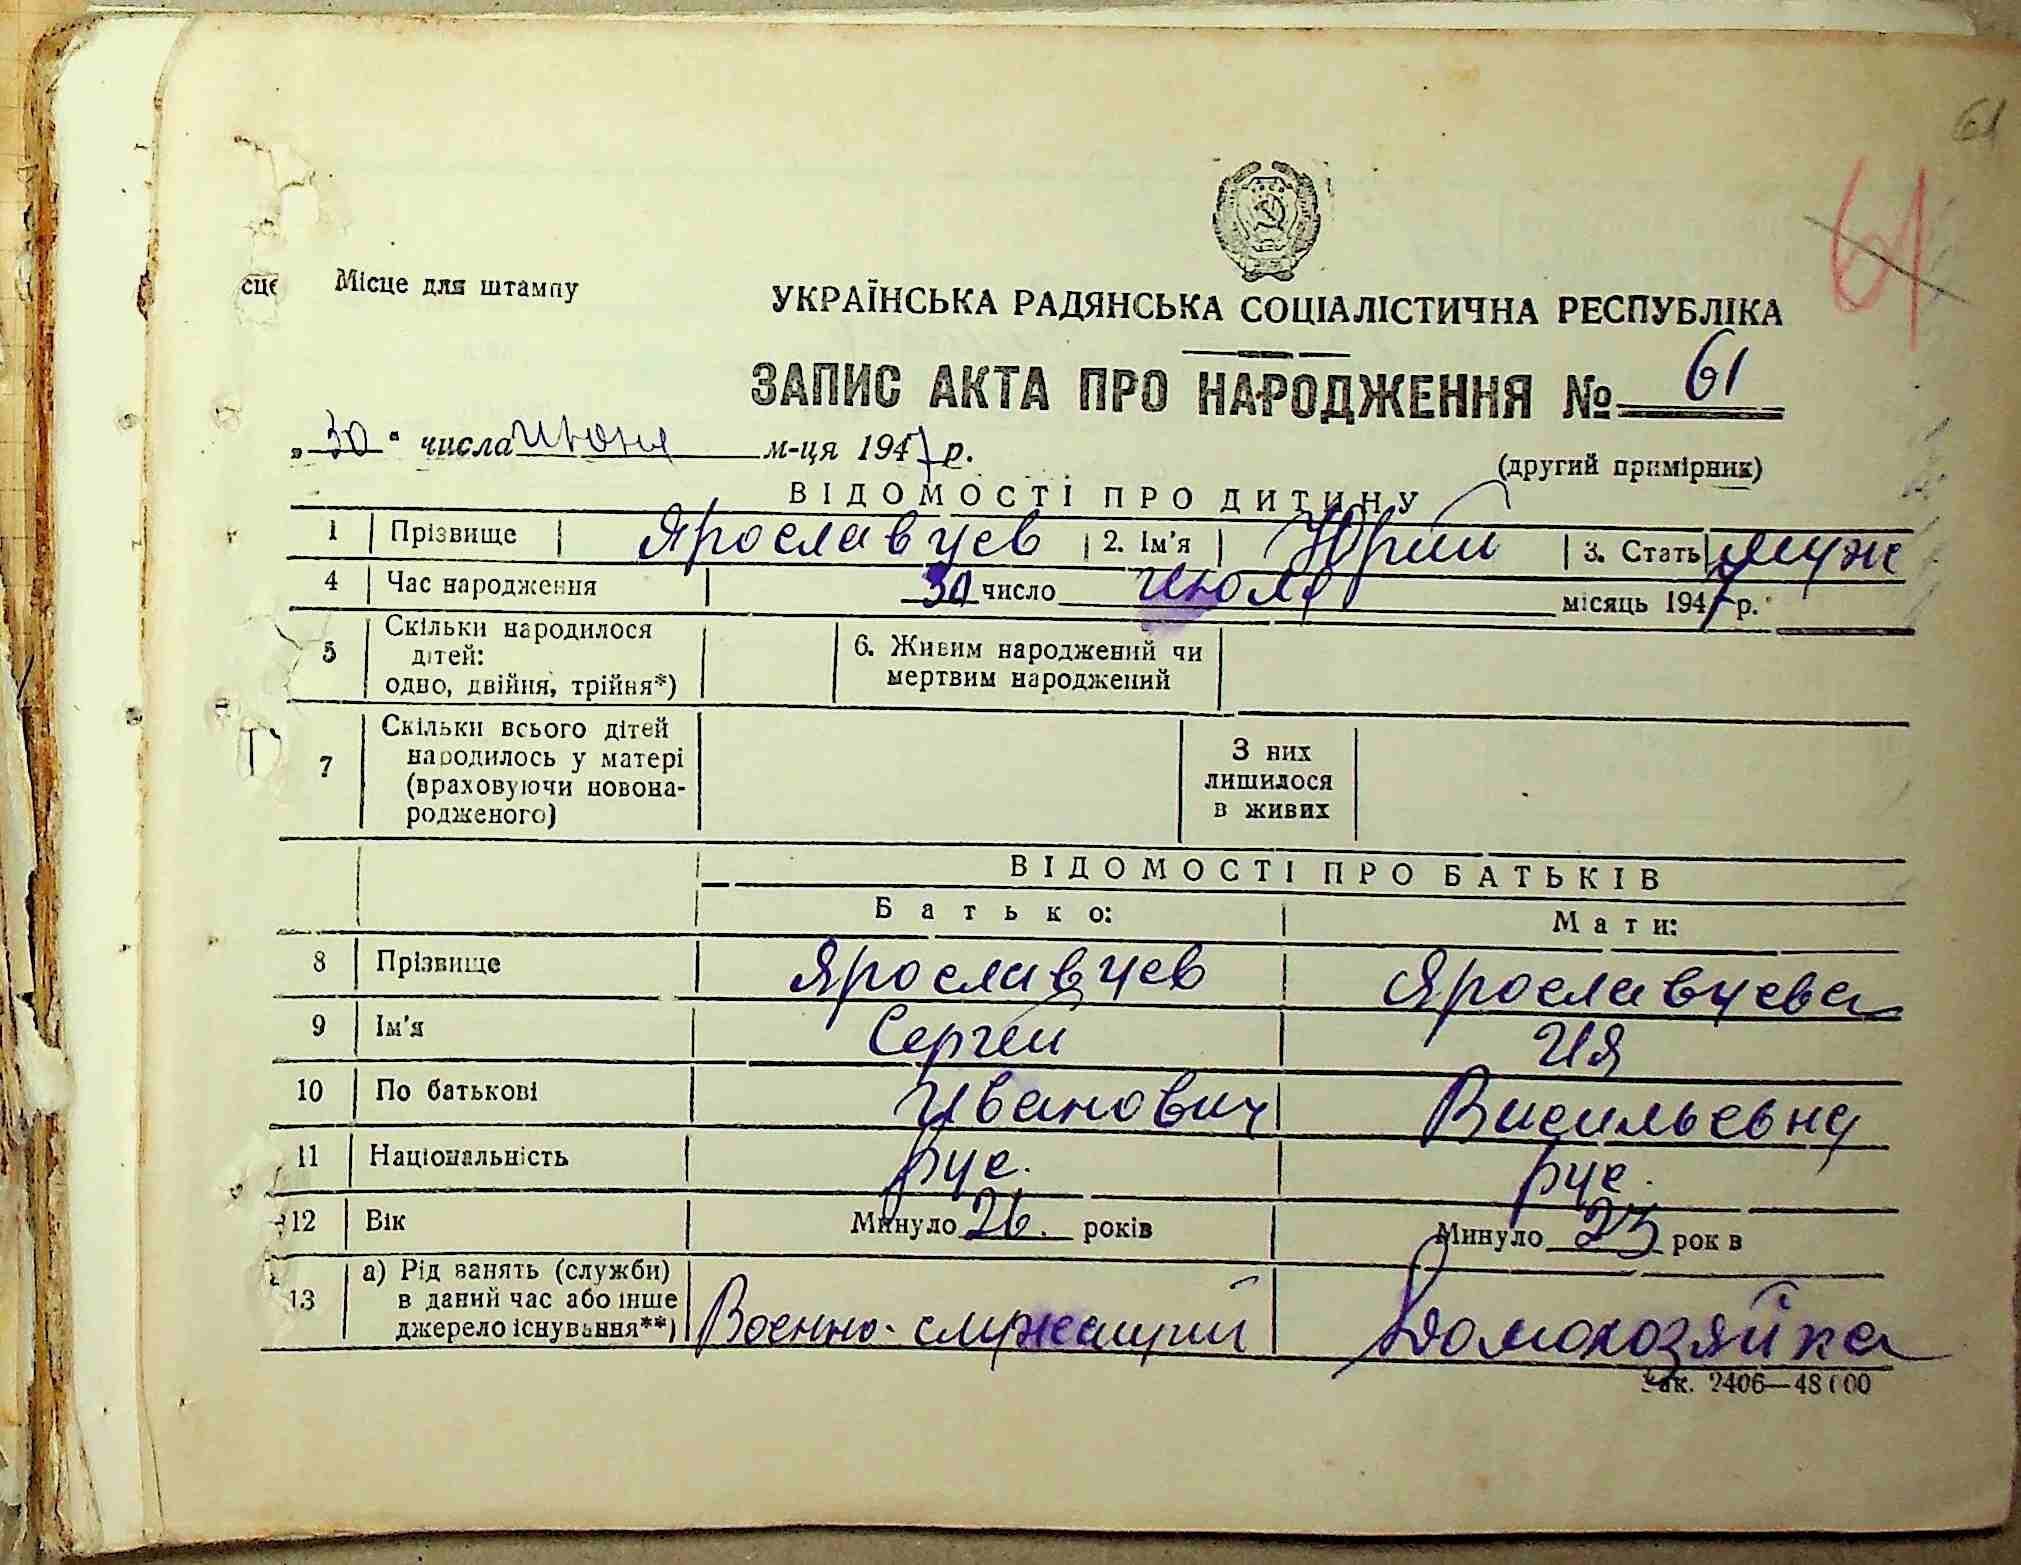 61
61
сце Місце для штампу
УКРАЇНСЬКА РАДЯНСЬКА СОЦІАЛІСТИЧНА РЕСПУБЛІКА
ЗАПИС АКТА ПРО НАРОДЖЕННЯ № 61
„30“ числа июня м-ця 1947 р.
(другий примірник)
ВІДОМОСТІ ПРО ДИТИНУ
1 Прізвище Ярославцев 2. Ім'я Юрий 3. Стать муж
4 Час народження 30 число місяць 1947 р.
5 Скільки народилося дітей: одно, двійня, трійня*) 6. Живим народжений чи мертвим народжений
7 Скільки всього дітей народилось у матері (враховуючи новона-родженого) З них лишилося в живих
ВІДОМОСТІ ПРО БАТЬКІВ
Батько: Мати:
8 Прізвище Ярославцев Ярославцева
9 Ім'я Сергей Ия
10 По батькові Иванович Васильевна
11 Національність рус. рус.
12 Вік Минуло 26. років Минуло 23 рок в
13 а) Рід занять (служби) в даний час або інше джерело існування**) Военно-служащий Домохозяйка
Зак. 2406—48000